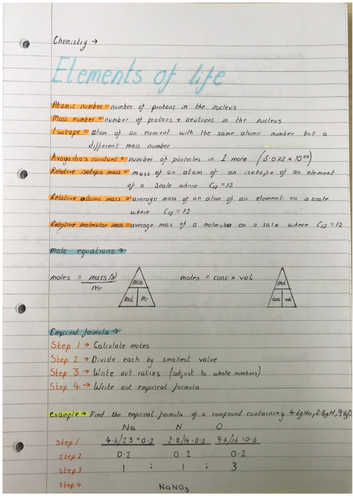 Chemistry →
Elements of life
Atomic number = number of protons in the nucleus
Mass number = number of protons + neutrons in the nucleus
Isotope = atom of an element with the same atomic number but a
different mass number
constant = number of particles in 1 mole
Relative isotopic mass = mass of an atom of an isotope of an element
of a scale where C12 = 12
Relative atomic mass = average mass of an atom of an element on a scale
where C12 = 12
Relative molecular mass = average mass of a molecule on a scale where C12 = 12
mole equations →
moles = mass (g) / mr
mass
mol mr
moles = conc × vol
mol
conc vol
Empirical formula →
Step 1 → Calculate moles
Step 2 → Divide each by smallest value
Step 3 → Write out ratios (adjust to whole numbers)
Step 4 → Write out empirical formula
example → Find the empirical formula of a compound containing 4.6g Na, 2.8g N, 9.6g O
Na N O
Step 1 4.6/23 = 0.2 2.8/14 = 0.2 9.6/16 = 0.6
step 2 0.2 0.2 0.2
step 3 1 : 1 : 3
step 4 NaNO3